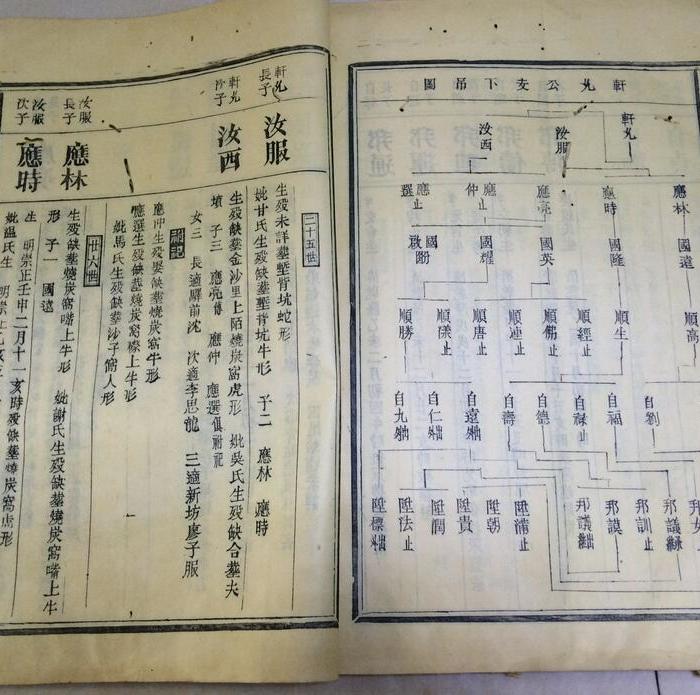 軒九公支下吊圖
軒九
汝服
汝西
應林
應時
應亮
應仲止
應選止
國遠
國隆
國英
國耀
國盼
順高
順生
順經止
順傭止
順連止
順唐止
順漾止
順勝
自劉
自福
自祿止
自德
自壽
自遠
自仁
自九
邦安
邦議
邦訓止
邦謨
邦議
陞浦止
陞朝
陞貴
陞潤
陞法止
陞標
二十五世
軒九長子
汝服
生歿未詳墓塹背坑蛇形
妣甘氏生歿缺墓塹背坑牛形 子二 應林 應時
軒九次子
汝西
生歿缺墓金沙里上陌燒炭窩虎形 妣吳氏生歿缺合墓夫
墳 子三 應亮 應仲 應選俱祔祀
女三 長適驛前沈 次適李思龍 三適新坊廖子服
祔記
應仲生歿娶缺墓燒炭窩牛形
應選生歿缺墓燒炭窩嘴上牛形
妣馬氏生歿缺墓沙子 人形
廿六世
汝服長子
應林
生歿缺墓燒炭窩嘴上牛形 妣謝氏生歿缺墓燒炭窩嘴上牛
形 子一 國遠
汝服次子
應時
生 明崇正壬申二月十一亥時歿缺墓燒炭窩虎形
妣温氏生 明崇正